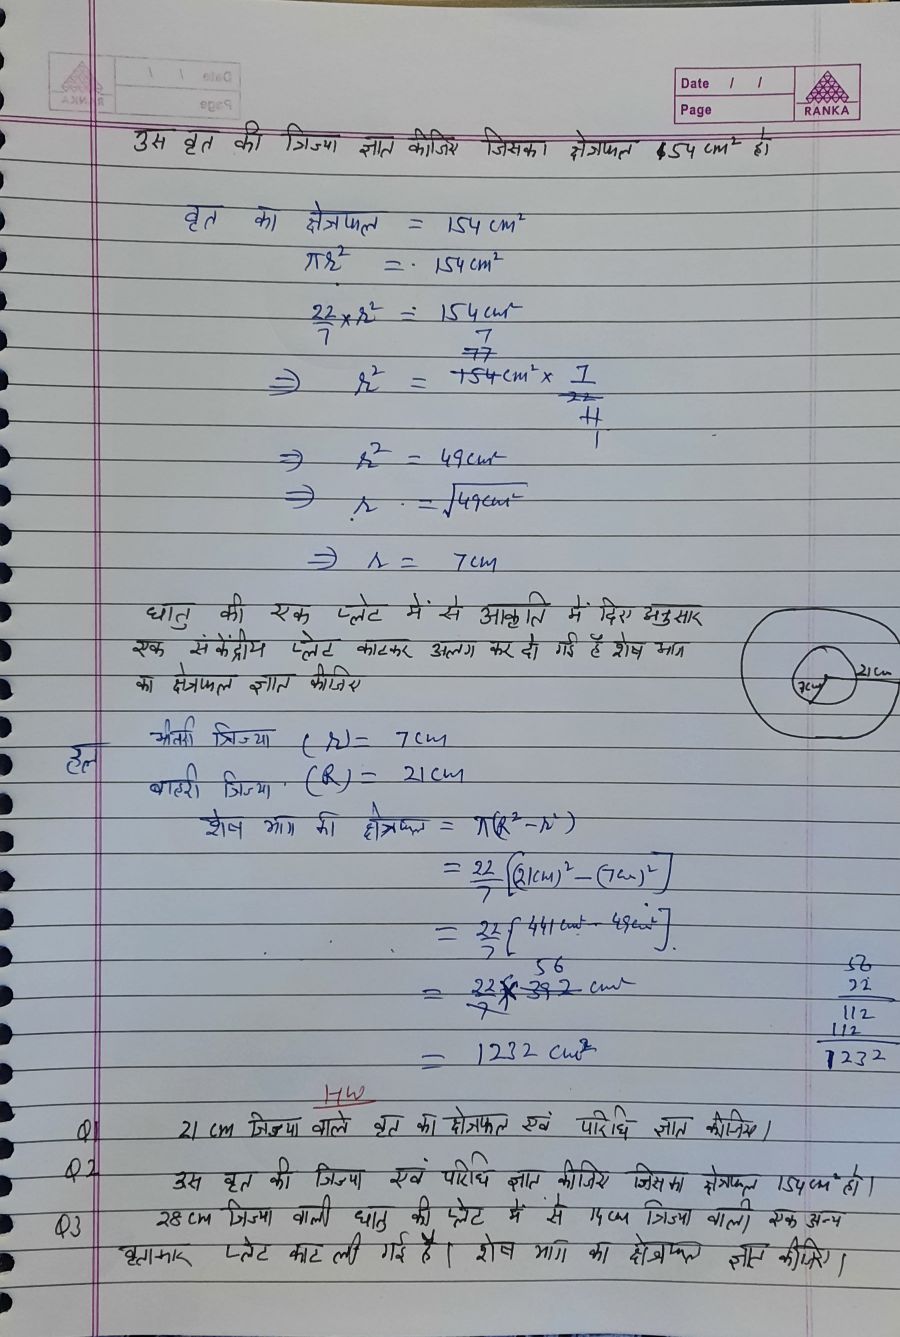 Date / /
Page
RANKA
उस वृत की त्रिज्या ज्ञात कीजिए जिसका क्षेत्रफल 154 cm² हो
वृत का क्षेत्रफल = 154 cm²
πr² = 154 cm²
22/7 × r² = 154 cm²
7
77
⇒ r² = 154 cm² × 7/22
11
1
⇒ r² = 49 cm²
⇒ r = √49 cm²
⇒ r = 7 cm
धातु की एक प्लेट में से आकृति में दिए अनुसार
एक संकेंद्रीय प्लेट काटकर अलग कर दी गई है शेष भाग
का क्षेत्रफल ज्ञात कीजिए
21 cm
7cm
हल भीतरी त्रिज्या (r) = 7 cm
बाहरी त्रिज्या (R) = 21 cm
शेष भाग का क्षेत्रफल = π(R² - r²)
= 22/7 [(21cm)² - (7cm)²]
= 22/7 [441 cm² - 49 cm²]
56
= 22/7 × 392 cm²
= 1232 cm²
56
22
112
112
1232
HW
Q1 21 cm त्रिज्या वाले वृत का क्षेत्रफल एवं परिधि ज्ञात कीजिए।
Q2 उस वृत की त्रिज्या एवं परिधि ज्ञात कीजिए जिसका क्षेत्रफल 154 cm² हो।
Q3 28 cm त्रिज्या वाली धातु की प्लेट में से 14 cm त्रिज्या वाली एक अन्य
वृताकार प्लेट काट ली गई है। शेष भाग का क्षेत्रफल ज्ञात कीजिए।